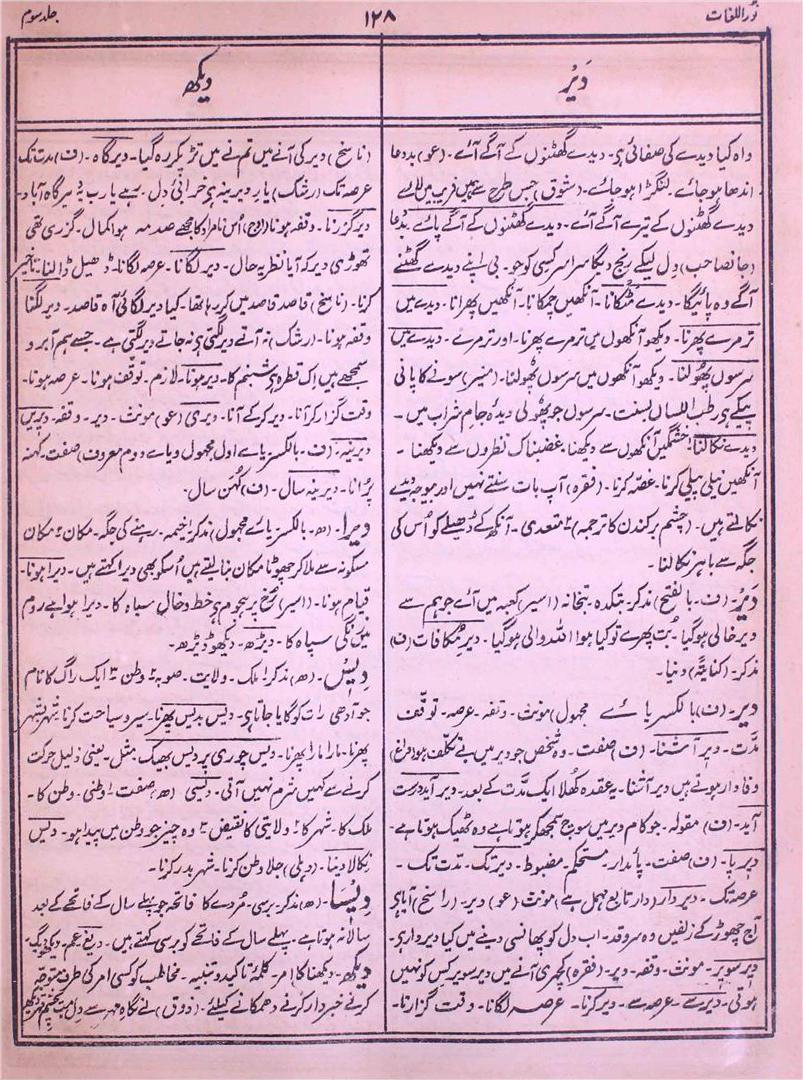 نور اللغات
۱۲۸
جلد سوم
دَیْر
دیکھ
واہ کیا دیدے کی صفائی ہی۔ دیدے گھٹنوں کے آگے آئے۔ (عو) بددعا
اندھا ہو جائے۔ لنگڑا ہو جائے۔ (شوق) جس طرح سے ہیں فریب میں لائے
دیدے گھٹنوں کے تیرے آگے آئے۔ دیدے گھٹنوں کے آگے پائے۔ بدعا
(جانصاحب) دل لیکے رنج دیگا سراسر کسی کو جو۔ بی اپنے دیدے گھٹنے
آگے وہ پائیگا۔ دیدے مٹکانا۔ آنکھیں چمکانا۔ آنکھیں پھرانا۔ دیدے میں
ترمرے پھرنا۔ دیکھو آنکھوں میں ترمرے پھرنا۔ اور ترمرے۔ دیدے میں
سرسوں پھولنا۔ دیکھو آنکھوں میں سرسوں پھولنا۔ (منیر) سونے کا پانی
پیکے ہی رطب اللسان بسنت۔ سرسوں جو پھولی دیدۂ جام شراب میں۔
دیدے نکالنا۔ خشمگیں آنکھوں سے دیکھنا۔ غضبناک نظروں سے دیکھنا۔
آنکھیں نیلی پیلی کرنا۔ غصہ کرنا۔ (فقرہ) آپ بات سنتے نہیں اور بیوجہ دیدے
نکالتے ہیں۔ (چشم برکندن کا ترجمہ) ۲ متعدی۔ آنکھ کے ڈھیلے کو اُس کی
جگہ سے باہر نکالنا۔
دَیْر۔ (ف۔ بالفتح) مذکر۔ بتکدہ۔ بتخانہ (اسیر) کعبہ میں آئے جو ہم سے
دیر خالی ہو گیا۔ بُت پھرے تو کیا ہوا اللہ والی ہو گیا۔ دیر مکافات (ف)
مذکر۔ (کنایۃً) دنیا۔
دیر۔ (ف) بالکسر یائے مجہول) مونث۔ وقفہ۔ عرصہ۔ توقف
مدّت۔ دیر آشنا۔ (ف) صفت۔ وہ شخص جو دیر میں بے تکلف ہو (فراغ)
وفادار ہونے ہیں دیر آشنا۔ یہ عقدہ کھلا ایک مدّت کے بعد۔ دیر آید درست
آید۔ (ف) مقولہ۔ جو کام دیر میں سوچ سمجھ کر ہوتا ہے وہ ٹھیک ہوتا ہے۔
دیر پا۔ (ف) صفت۔ پائدار۔ مستحکم۔ مضبوط۔ دیر تک۔ مدت تک۔
عرصہ تک۔ دیر دار (دار تابع مہمل ہے) مونث (عو) دیر۔ (راسخ) آیا ہی
آج چھوڑ کے زلفیں وہ سرو قد۔ اب دل کو پھانسی دینے میں کیا دیر دار ہی۔
دیر سویر۔ مونث۔ وقفہ۔ دیر۔ (فقرہ) کچہری آنے میں دیر سویر کس کو نہیں
ہوتی۔ دیر سے۔ عرصہ سے۔ دیر کرنا۔ عرصہ لگانا۔ وقت گزارنا۔
(ناسخ) دیر کی آنے میں تم نے میں تڑپ کر رہ گیا۔ دیر گاہ۔ (ف) مدت تک
عرصہ تک (رشک) یار دیرینہ ہی خرابئ دل۔ رہے یارب یہ دیر گاہ آباد۔
دیر گزرنا۔ وقفہ ہونا (اوج) اُس نامراد کا مجھے صدمہ ہوا کمال۔ گزری تھی
تھوڑی دیر کہ آیا نظر یہ حال۔ دیر لگانا۔ عرصہ لگانا۔ ڈھیل ڈالنا۔ تاخیر
کرنا۔ (ناسخ) قاصد قاصد میں کر رہا تھا۔ کیا دیر لگائی آہ قاصد۔ دیر لگنا
وقفہ ہونا۔ (رشک) نہ آتے دیر لگتی ہی نہ جاتے دیر لگتی ہے۔ جسے ہم آبرو
سمجھے ہیں اک قطرہ ہی شبنم کا۔ دیر ہونا۔ لازم۔ توقف ہونا۔ عرصہ ہونا۔
وقت گزار کر آنا۔ دیر کر کے آنا۔ دیری (عو) مونث۔ دیر۔ وقفہ۔ دیریں
دیرینہ۔ (ف۔ بالکسر یاے اول مجہول و یاے دوم معروف) صفت۔ کہنہ
پُرانا۔ دیرینہ سال۔ (ف) کُہن سال۔
دیرا۔ (ھ۔ بالکسر یائے مجہول) مذکر ۱ خیمہ۔ رہنے کی جگہ۔ مکان ۲ مکان
مسکونہ سے ملا کر چھوٹا مکان بنا لیتے ہیں اُسکو بھی دیرا کہتے ہیں۔ دیرا ہونا۔
قیام ہونا۔ (اسیر) رخ پر ہجوم ہی خط و خال سیاہ کا۔ دیرا ہوا ہے روم
میں زنگی سپاہ کا۔ دیڑھ۔ دیکھو ڈیڑھ۔
دیس۔ (ھ) مذکر ۱ ملک۔ ولایت۔ صوبہ ۲ وطن ۳ ایک راگ کا نام
جو آدھی رات کو گایا جاتا ہی۔ دیس بدیس پھرنا۔ سیر و سیاحت کرنا۔ شہر شہر
پھرنا۔ مارا مارا پھرنا۔ دیس چوری پردیس بھیک۔ مثل۔ یعنی ذلیل حرکت
کرنے سے کہیں شرم نہیں آتی۔ دیسی (ھ) صفت ۱ وطنی۔ وطن کا۔
ملک کا۔ شہر کا ۲ ولایتی کا نقیض ۳ وہ چیز جو وطن میں پیدا ہو۔ دیس
نکالا دینا۔ (دہلی) جلاوطن کرنا۔ شہر بدر کرنا۔
دیسا۔ (ھ) مذکر۔ برسی۔ مُردے کا فاتحہ جو پہلے سال کے فاتحے کے بعد
سالانہ ہوتا ہے۔ پہلے سال کے فاتحے کو برسی کہتے ہیں۔ دیغ غم۔ دیکھو دیگ۔
دیکھ۔ دیکھنا کا امر۔ کلمۂ تاکید و تنبیہ۔ مخاطب کو کسی امر کی طرف متوجہ
کرنے خبردار کرنے دھمکانے کیلئے۔ (ذوق) نے نگاہ مہر سے دل